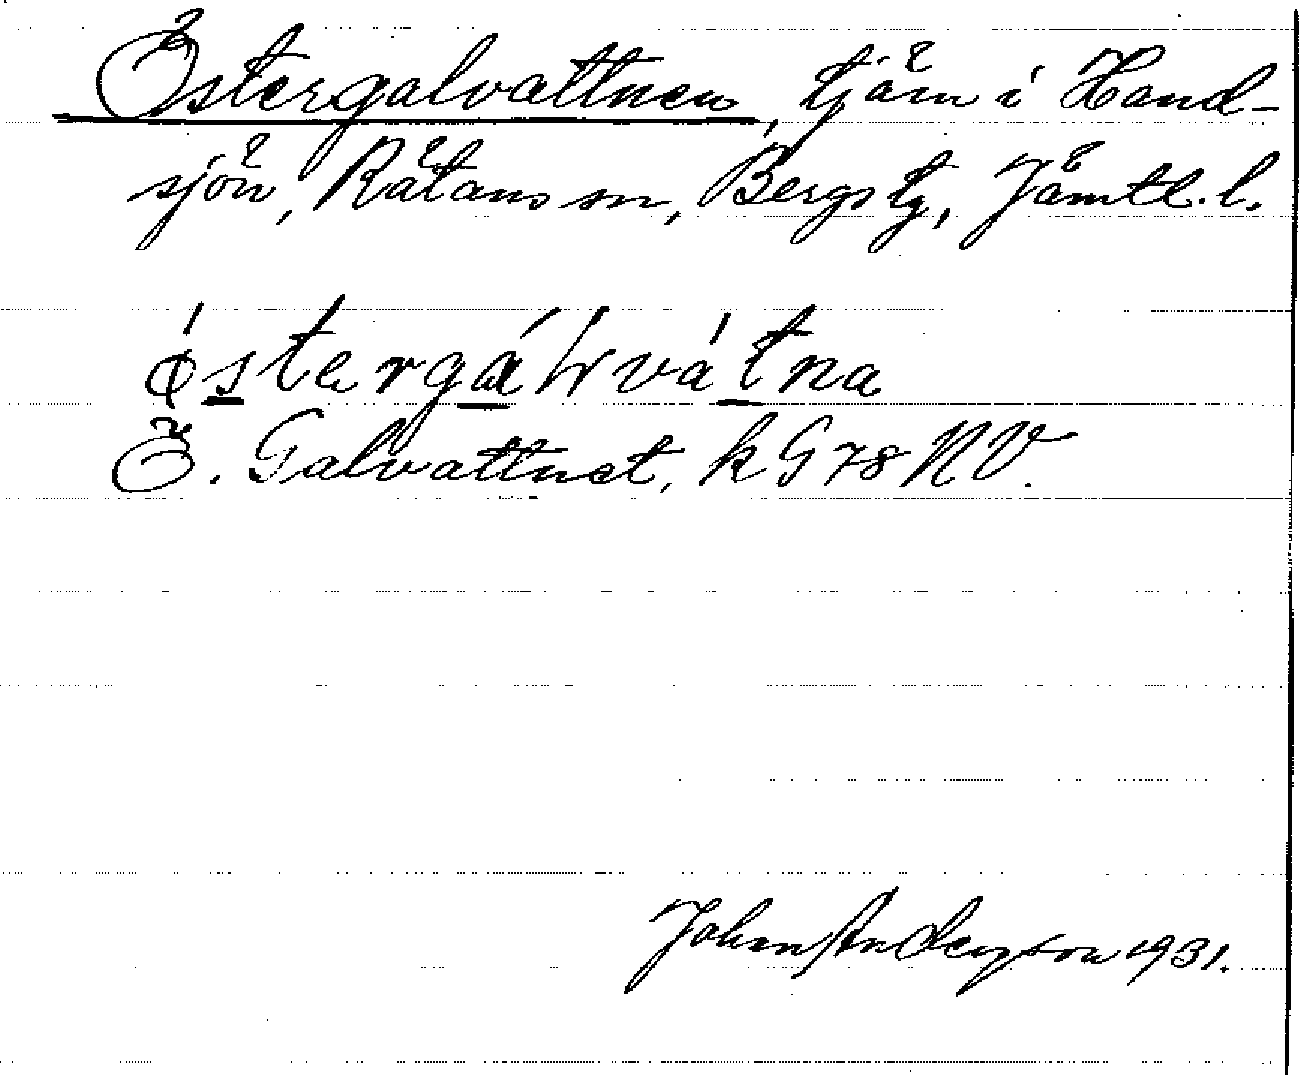 Östergalvattnen, tjärn i Hand-
sjön, Rätans sn, Bergs tg, Jämtl. l.
ǿstergálvvátna
Ö. Galvattnet, k G 78 NV.
Johan Anderson 1931.